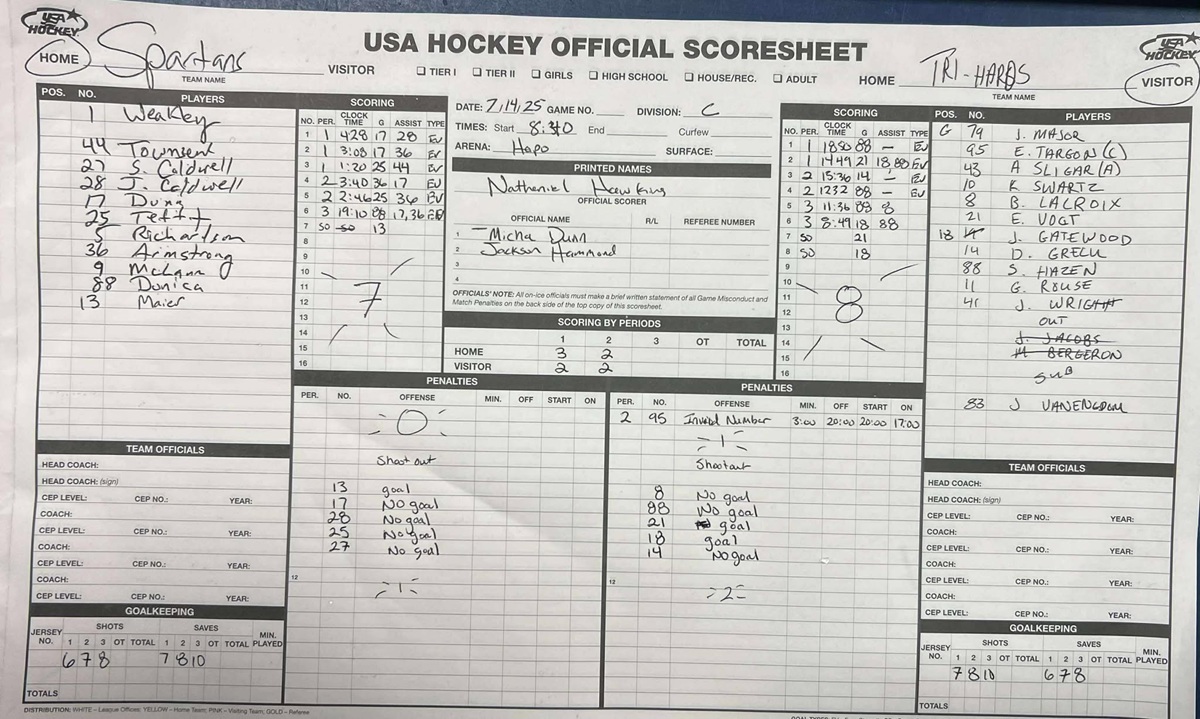 USA HOCKEY
USA HOCKEY OFFICIAL SCORESHEET
USA HOCKEY
HOME Spartans VISITOR ☐ TIER I ☐ TIER II ☐ GIRLS ☐ HIGH SCHOOL ☐ HOUSE/REC. ☐ ADULT HOME TRI-HARDS VISITOR
TEAM NAME TEAM NAME
POS. NO. PLAYERS
1 Weakley
44 Townsent
27 S. Caldwell
28 J. Caldwell
17 Dunn
25 Tettit
5 Richardson
36 Armstrong
9 McCann
88 Donica
13 Maier
SCORING
NO. PER. CLOCK TIME G ASSIST TYPE
1 1 428 17 28 EV
2 1 3:08 17 36 EV
3 1 1:20 25 44 EV
4 2 3:40 36 17 EV
5 2 2:46 25 36 EV
6 3 19:10 88 17,36 EV
7 SO SO 13
8
9
10
11
12
13
14
15
16
7
DATE: 7,14,25 GAME NO. DIVISION: C
TIMES: Start 8:30 End Curfew
ARENA: Hapo SURFACE:
PRINTED NAMES
Nathaniel Hawking
OFFICIAL SCORER
OFFICIAL NAME R/L REFEREE NUMBER
1 Micha Dunn
2 Jackson Hammond
3
4
OFFICIALS' NOTE: All on-ice officials must make a brief written statement of all Game Misconduct and
Match Penalties on the back side of the top copy of this scoresheet.
SCORING BY PERIODS
1 2 3 OT TOTAL
HOME 3 2
VISITOR 2 2
SCORING
NO. PER. CLOCK TIME G ASSIST TYPE
1 1 1850 88 — EV
2 1 1449 21 18 88 EV
3 2 15:36 14 — EV
4 2 1232 88 — EV
5 3 11:36 88 8
6 3 8:49 18 88
7 SO 21
8 SO 18
9
10
11
12
13
14
15
16
8
POS. NO. PLAYERS
G 79 J. MAJOR
95 E. TARGON (C)
43 A SLIGAR (A)
10 K SWARTZ
8 B. LACROIX
21 E. VOGT
18 J. GATEWOOD
14 D. GRELL
88 S. HAZEN
11 G. ROUSE
41 J. WRIGHT
OUT
J. JACOBS
M BERGERON
SUB
83 J VANENGDOM
PENALTIES
PER. NO. OFFENSE MIN. OFF START ON
0
Shoot out
13 goal
17 No goal
28 No goal
25 No goal
27 No goal
12
1
PENALTIES
PER. NO. OFFENSE MIN. OFF START ON
2 95 Invalid Number 3:00 20:00 20:00 17:00
1
Shootout
8 No goal
88 No goal
21 goal
18 goal
14 No goal
12
2
TEAM OFFICIALS
HEAD COACH:
HEAD COACH: (sign)
CEP LEVEL: CEP NO.: YEAR:
COACH:
CEP LEVEL: CEP NO.: YEAR:
COACH:
CEP LEVEL: CEP NO.: YEAR:
COACH:
CEP LEVEL: CEP NO.: YEAR:
GOALKEEPING
JERSEY NO. SHOTS SAVES MIN. PLAYED
1 2 3 OT TOTAL 1 2 3 OT TOTAL
6 7 8 7 8 10
TOTALS
TEAM OFFICIALS
HEAD COACH:
HEAD COACH: (sign)
CEP LEVEL: CEP NO.: YEAR:
COACH:
CEP LEVEL: CEP NO.: YEAR:
COACH:
CEP LEVEL: CEP NO.: YEAR:
COACH:
CEP LEVEL: CEP NO.: YEAR:
GOALKEEPING
JERSEY NO. SHOTS SAVES MIN. PLAYED
1 2 3 OT TOTAL 1 2 3 OT TOTAL
7 8 10 6 7 8
TOTALS
DISTRIBUTION: WHITE – League Offices; YELLOW – Home Team; PINK – Visiting Team; GOLD – Referee